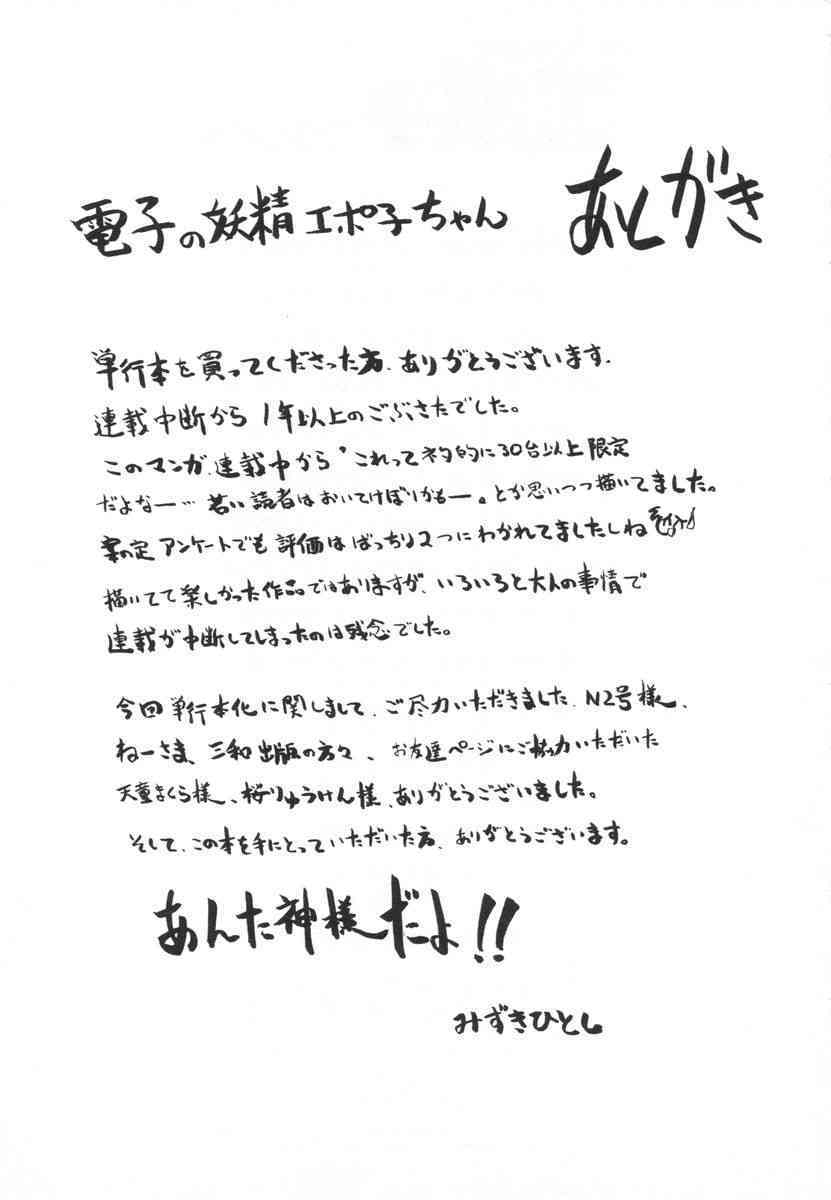 電子の妖精エポ子ちゃん あとがき
単行本を買ってくださった方、ありがとうございます.
連載中断から1年以上のごぶさたでした。
このマンガ、連載中から“これってネタ的に30台以上限定
だよなー…若い読者はおいてけぼりかもー。とか思いつつ描いてました。
案の定アンケートでも評価はばっちり2つにわかれてましたしね
描いてて楽しかった作品ではありますが、いろいろと大人の事情で
連載が中断してしまったのは残念でした。
今回単行本化に関しまして、ご尽力いただきました、N2号様、
ねーさま、三和出版の方々、お友達ページにご協力いただいた
天童さくら様、桜りゅうけん様、ありがとうございました。
そして、この本を手にとっていただいた方、ありがとうございます。
あんた神様だよ!!
みずきひとし